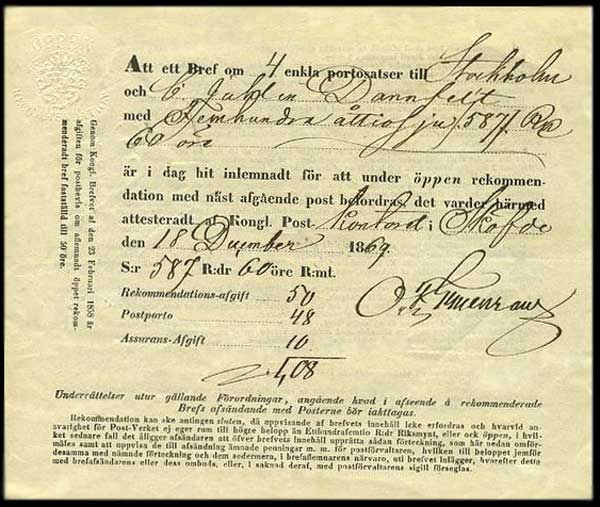 Att ett Bref om 4 enkla portosatser till Stockholm
och C. Juhlin Dannfelt
med Femhundra åttiosju/587/ Rd
60 öre
är i dag hit inlemnadt för att under öppen rekommen-
dation med näst afgående post befordras, det varder härmed
attesteradt af Kongl. Post-Kontord i Sköfde
den 18 December 1869.
S:r 587 R:dr 60 öre R:mt.
Rekommendations-afgift 50
Postporto 48
Assurans-Afgift 10
1,08
Genom Kongl. Brefvet af den 23 Februari 1858 är
afgiften för postbevis om aflemnadt öppet rekom-
menderadt bref fastställd till 50 öre.
ÖPPEN
Underrättelser utur gällande Förordningar, angående hvad i afseende å rekommenderade
Brefs afsändande med Posterne bör iakttagas.
Rekommendation kan ske antingen sluten, då uppvisande af brefvets innehåll icke erfordras och hvarvid an-
svarighet för Post-Verket ej eger rum till högre belopp än Etthundrafemtio R:dr Riksmynt, eller ock öppen, i hvil-
ket sednare fall det åligger afsändaren att öfver brefvets innehåll upprätta sådan förteckning, som här nedan omför-
mäles samt att uppvisa de till afsändning ämnade penningar m. m. för postförvaltaren, hvilken till beloppet jemför
desamma med nämnde förteckning och dem sedermera, i brefaflemnarens närvaro, uti brefvet inlägger, hvarefter detta
med brefafsändarens eller dess ombuds, eller, i saknad deraf, med postförvaltarens sigill förseglas.